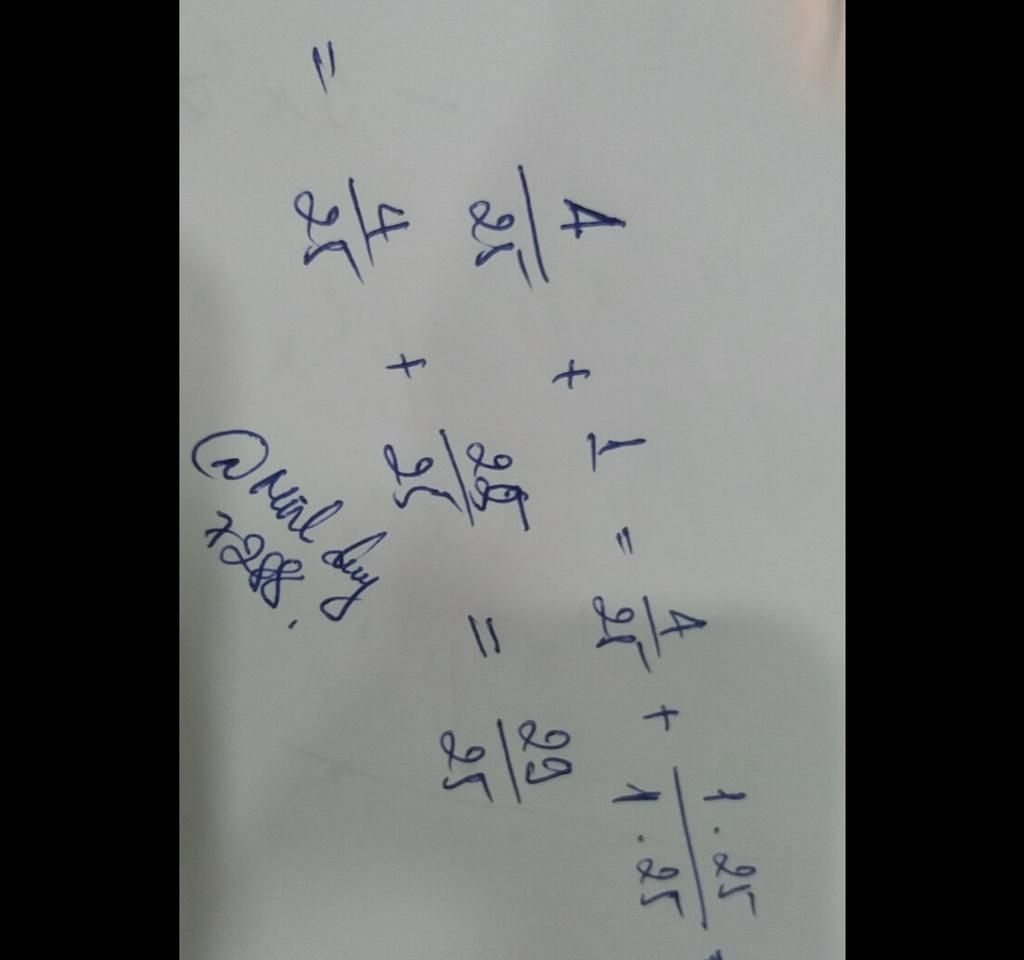 4/25 + 1 = 4/25 + 1.25/1.25 =
= 4/25 + 25/25 = 29/25
@
7288.